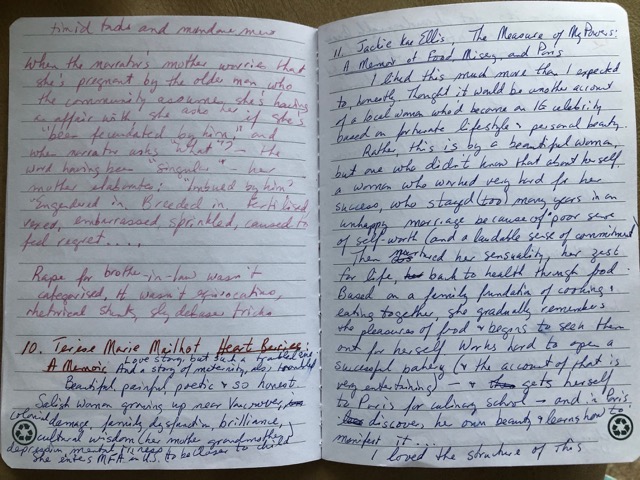 timid tacks and mondane men
When the narrator's mother worries that
she's pregnant by the older man who
the community assumes she's having
an affair with, she asks her if she's
"been fecundated by him," and
when narrator asks "what"? - the
word having been "singular" her
mother elaborates: "Imbued by him?
"Engendered in. Breeded in. Fertilised
vexed, embarrassed, sprinkled, caused to
feel regret....,
Rape for brother-in-law wasn't
categorised, It wasn't equivocation,
rhetorical stunt, sly debaser tricks
10. Terese Marie Mailhot Heart Berries:
A Memoir Love story, but such a troubled one
And a story of maternity, also troubled
Beautiful, painful, poetic & so honest.
Salish woman growing up near Vancouver,
colonial damage, family dysfunction, brilliance,
cultural wisdom (her mother, grandmother)
depression mental illness
she enters MFA in U.S. to be closer to child
11. Jackie Kai Ellis' The Measure of My Powers:
A Memoir of Food, Misery, and Paris
I liked this much more than I expected
to, honestly. Thought it would be another account
of a local woman who'd become an IG celebrity
based on fortunate lifestyle & personal beauty.
Rather, this is by a beautiful woman,
but one who didn't know that about herself
a woman who worked very hard for her
success, who stayed (too) many years in an
unhappy marriage because of poor sense
of self-worth (and a laudable sense of commitment
Then nurtured her sensuality, her zest
for life, back to health through food.
Based on a family foundation of cooking &
eating together, she gradually remembers
the pleasures of food & begins to seek them
out for herself. Works hard to open a
successful bakery (& the account of that is
very entertaining) - & gets herself
to Paris for culinary school - and in Paris
discover, her own beauty & learns how to
manifest it...
I loved the structure of this